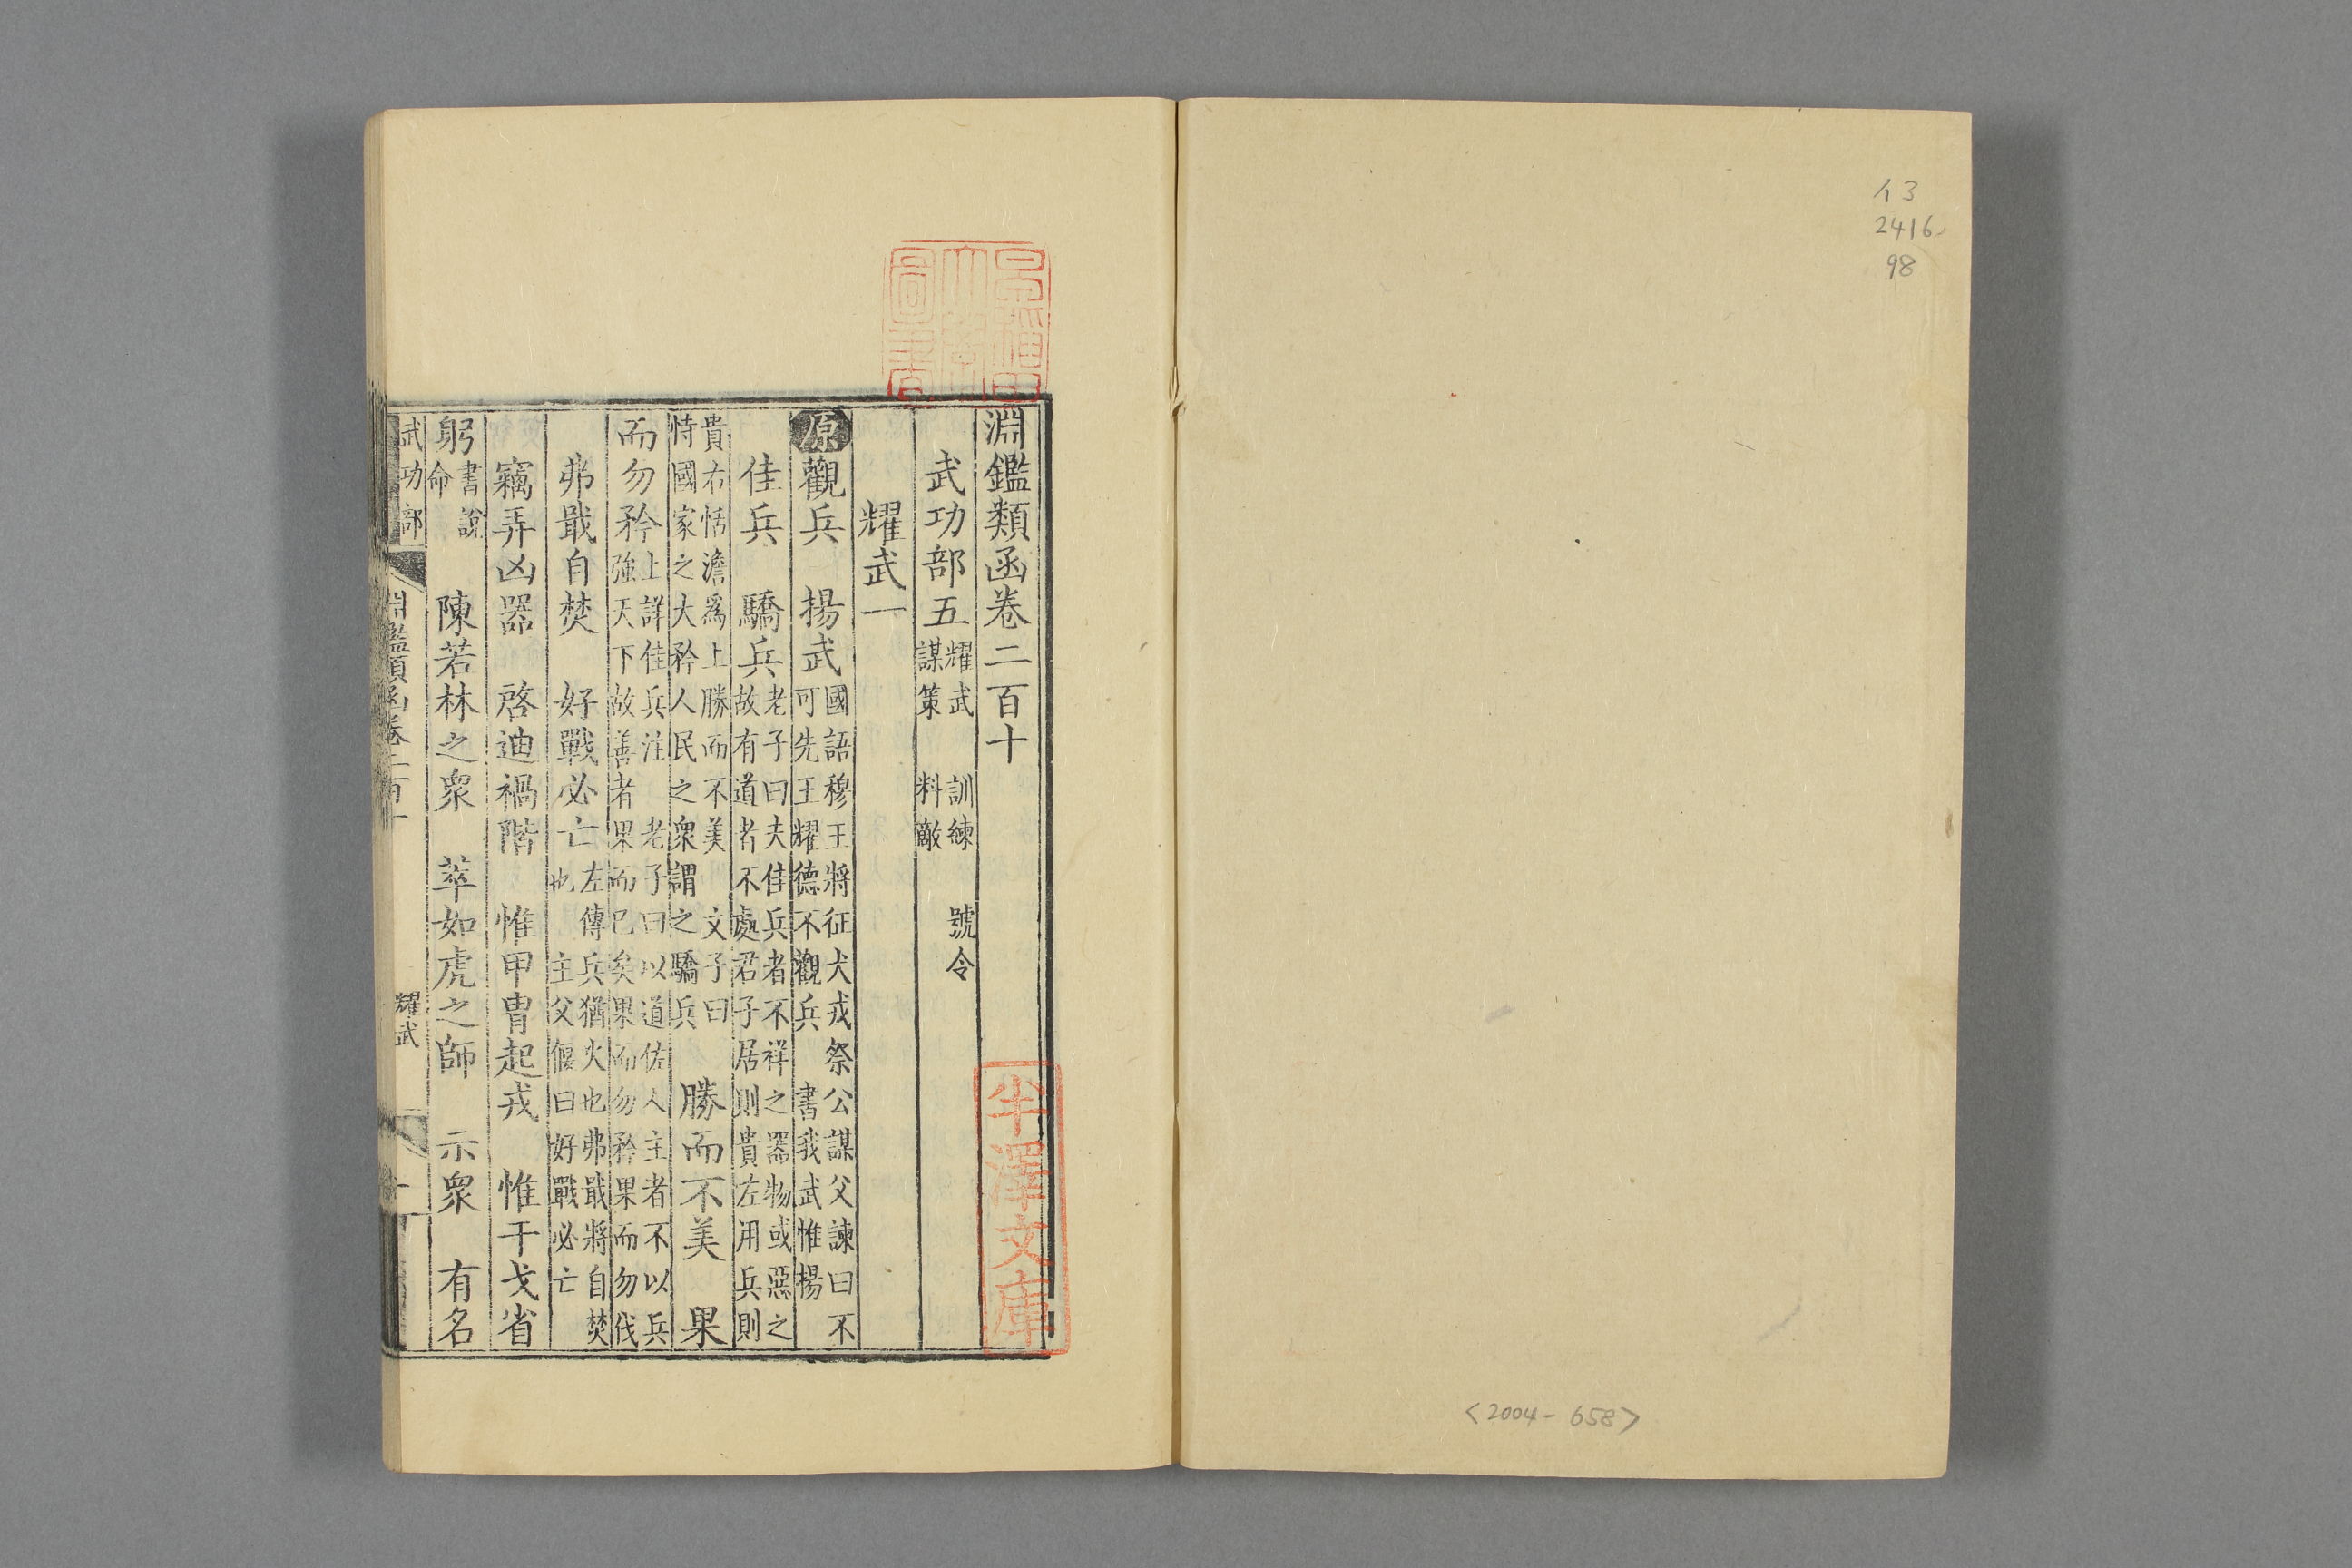 イ3
2416
98
<2004-658>
早稲田大學圖書
淵鑑類函卷二百十
武功部五耀武 訓練 號令謀策 料敵
耀武一
原觀兵 揚武國語穆王將征犬戎祭公謀父諫曰不可先王耀德不觀兵 書我武惟揚
佳兵 驕兵老子曰夫佳兵者不祥之器物或惡之故有道者不處君子居則貴左用兵則
貴右恬澹爲上勝而不美 文子曰恃國家之大矜人民之衆謂之驕兵 勝而不美 果
而勿矜上詳佳兵注 老子曰以道佐人主者不以兵強天下故善者果而已矣果而勿矜果而勿伐
弗戢自焚 好戰必亡左傳兵猶火也弗戢將自焚也 主父偃曰好戰必亡
竊弄凶器 啓迪禍階 惟甲冑起戎 惟干戈省
躬書說命 陳若林之衆 萃如虎之師 示衆 有名
武功部 淵鑑類函卷二百十 耀武 一
半澤文庫